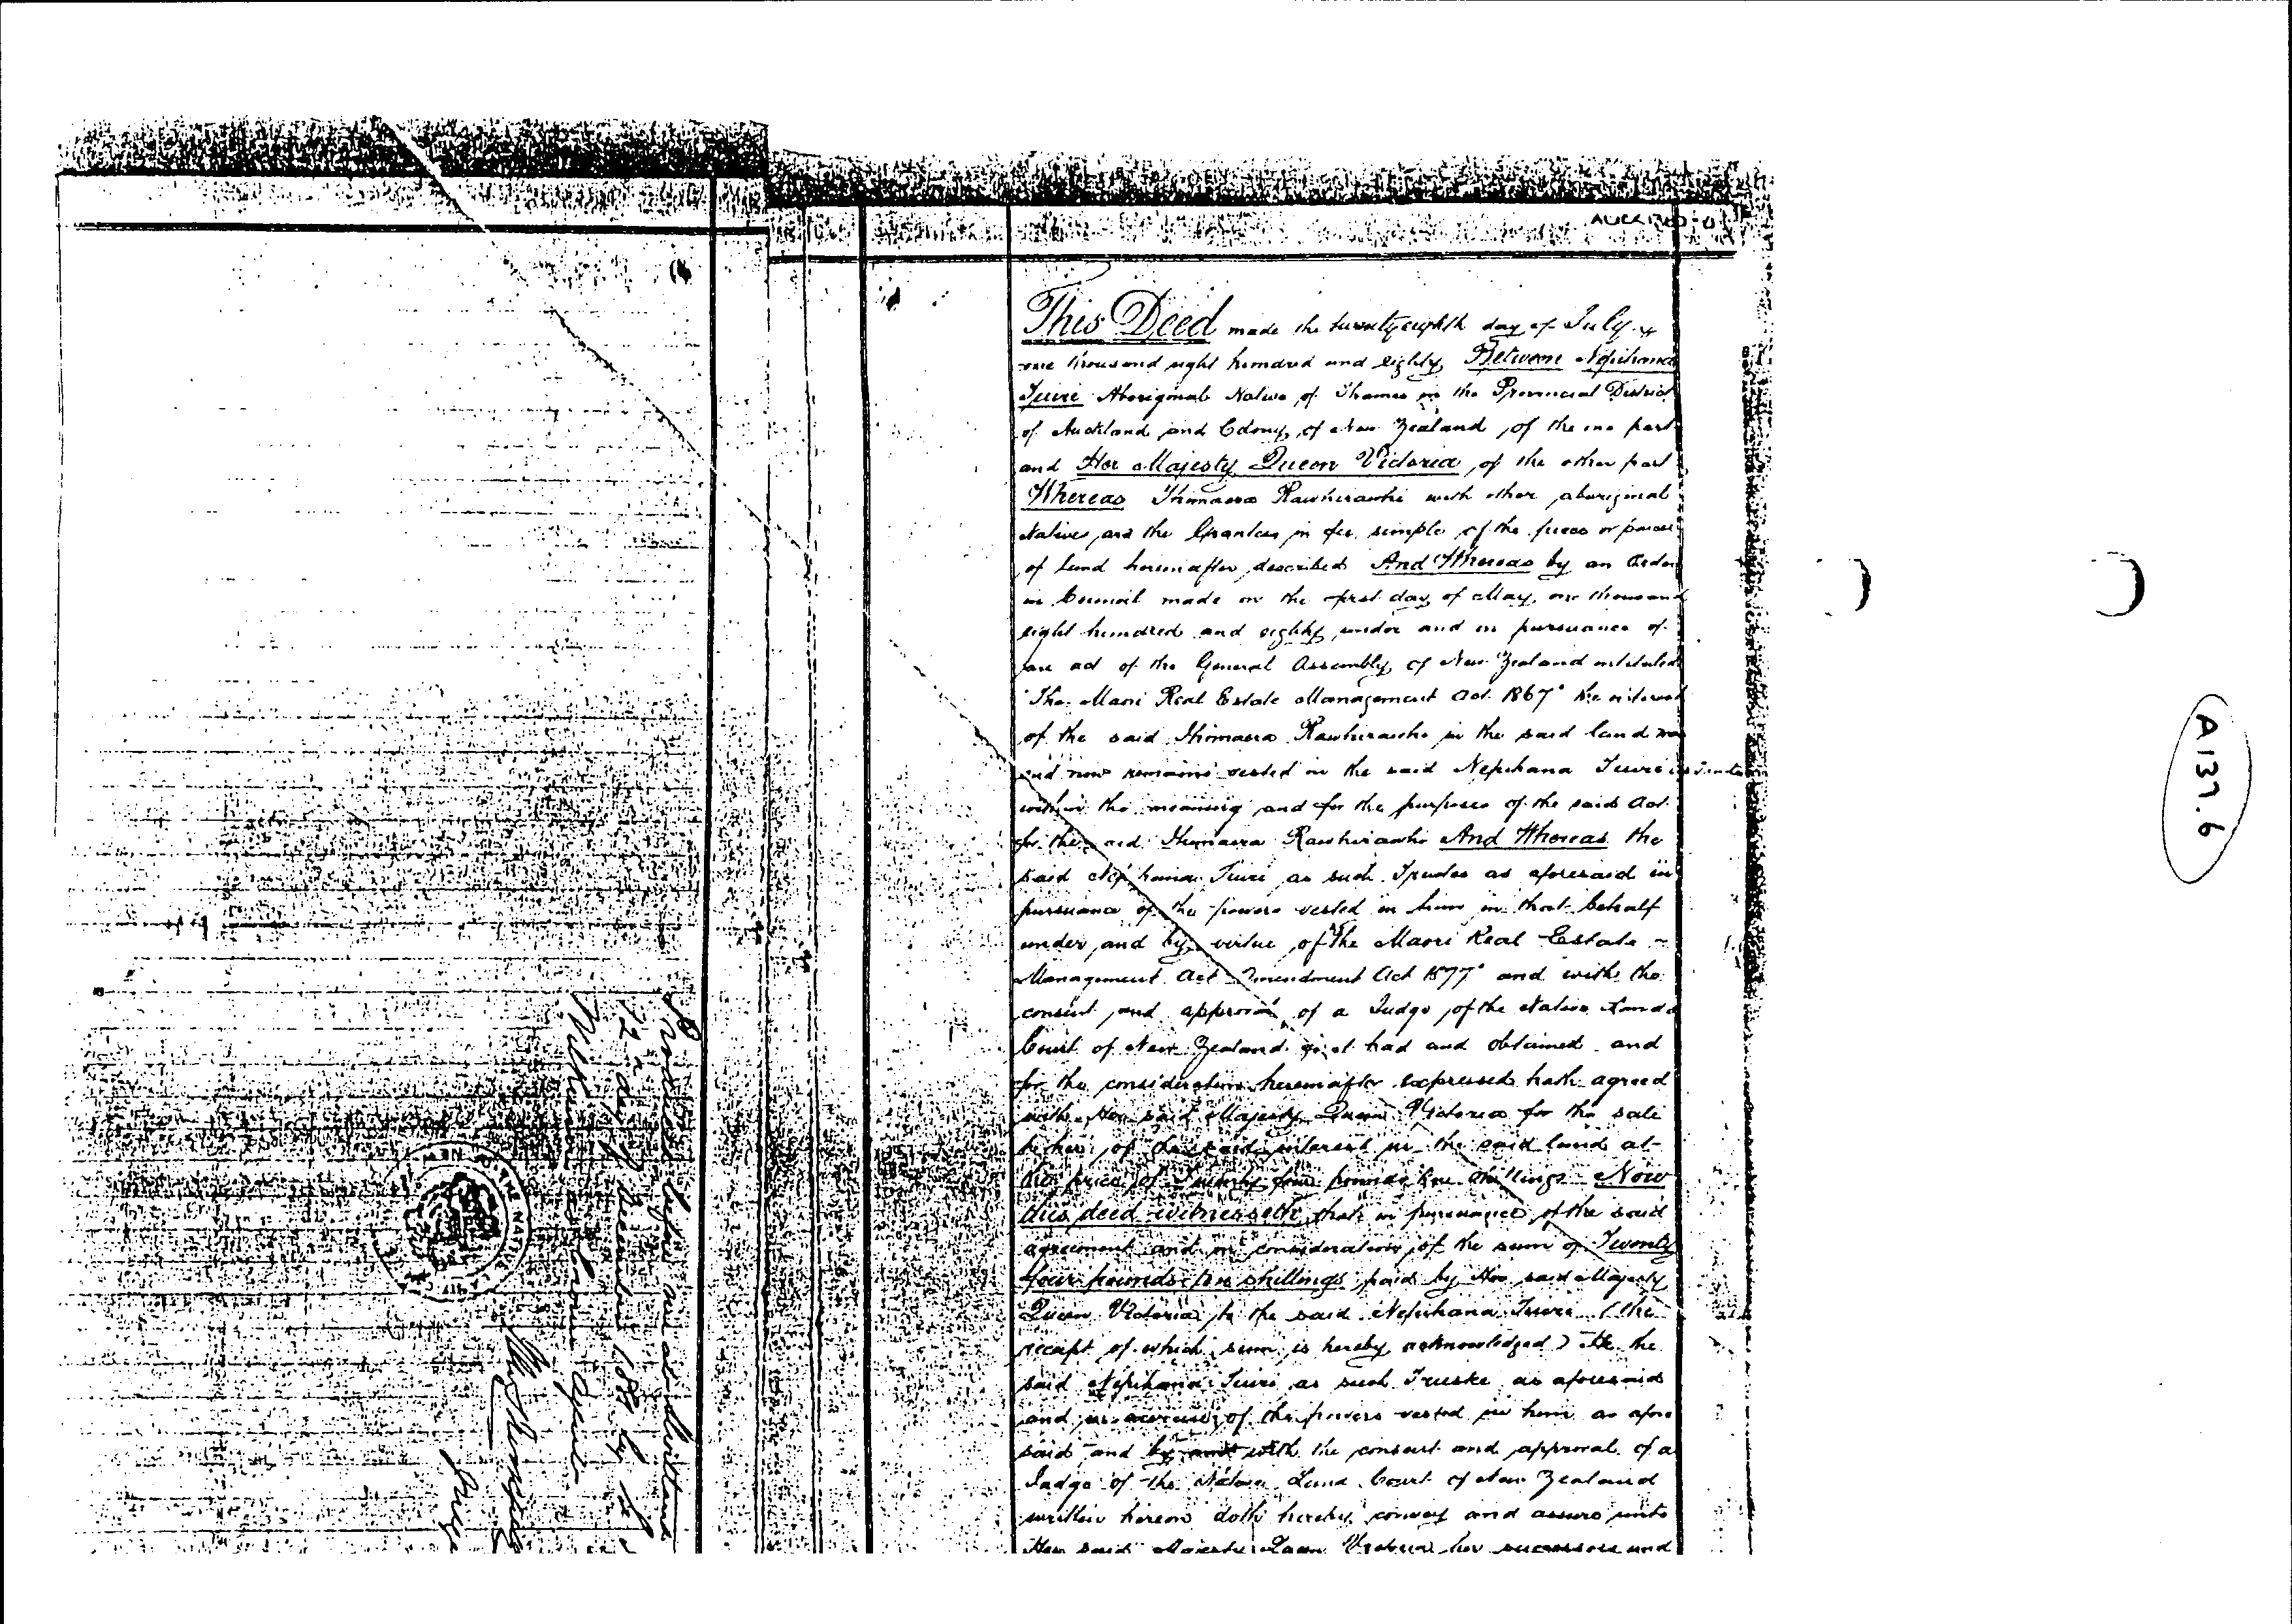 This Deed made the twenty eighth day of July
one thousand eight hundred and eighty Between Nepihana
Tuiri Aboriginal Native of Thames in the Provincial District
of Auckland and Colony of New Zealand of the one part
and Her Majesty Queen Victoria of the other part
Whereas Ihimaera Rawhirawhi with other aboriginal
Natives are the Grantees in fee simple of the piece or parcel
of land hereinafter described And Whereas by an Order
in Council made on the first day of May one thousand
eight hundred and eighty under and in pursuance of
an act of the General Assembly of New Zealand intituled
"The Maori Real Estate Management Act 1867" the interest
of the said Ihimaera Rawhirawhi in the said land was
and now remains vested in the said Nepihana Tuiri
within the meaning and for the purposes of the said Act
for the said Ihimaera Rawhirawhi And Whereas the
said Nepihana Tuiri as such Trustee as aforesaid in
pursuance of the powers vested in him in that behalf
under and by virtue of "The Maori Real Estate
Management Act Amendment Act 1877" and with the
consent and approval of a Judge of the Native Lands
Court of New Zealand first had and obtained and
for the consideration hereinafter expressed hath agreed
with Her said Majesty Queen Victoria for the sale
to her of the said interest in the said land at
the price of Twenty four pounds ten shillings Now
this deed witnesseth that in pursuance of the said
agreement and in consideration of the sum of Twenty
four pounds ten shillings paid by Her said Majesty
Queen Victoria to the said Nepihana Tuiri (the
receipt of which sum is hereby acknowledged) He the
said Nepihana Tuiri as such Trustee as aforesaid
and in exercise of the powers vested in him as afore
said and by and with the consent and approval of a
Judge of the Native Land Court of New Zealand
written hereon doth hereby convey and assure unto
Her said Majesty Queen Victoria her successors and
A137.6